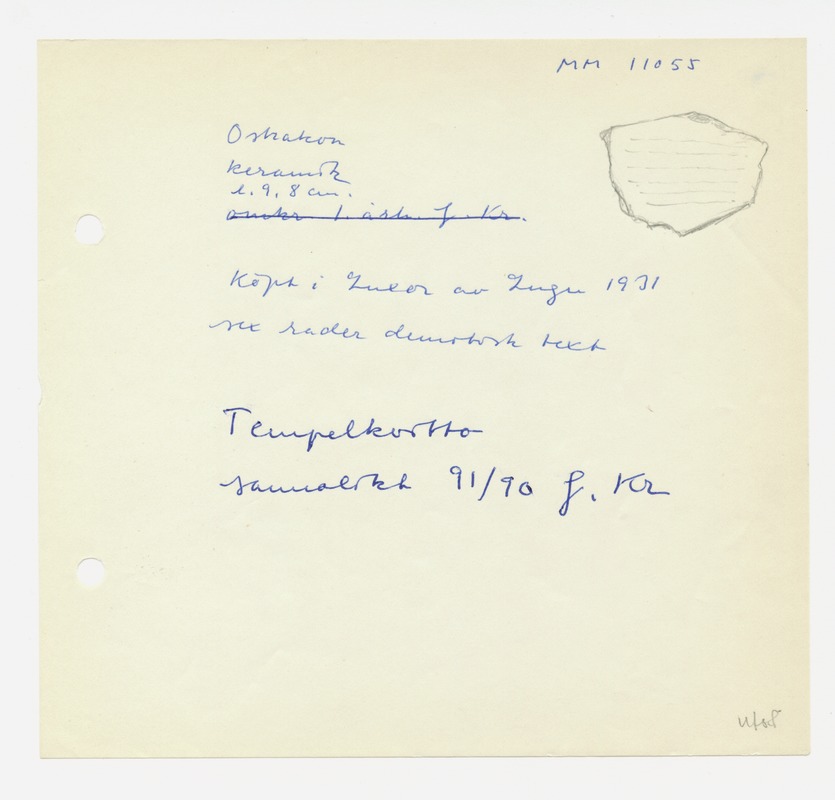 MM 11055
Ostrakon
keramik
l. 9,8 cm.
omkr 1. årh. f. Kr.
Köpt i Luxor av Lugn 1931
sex rader demotisk text
Tempelkvitto
sannolikt 91/90 f. Kr